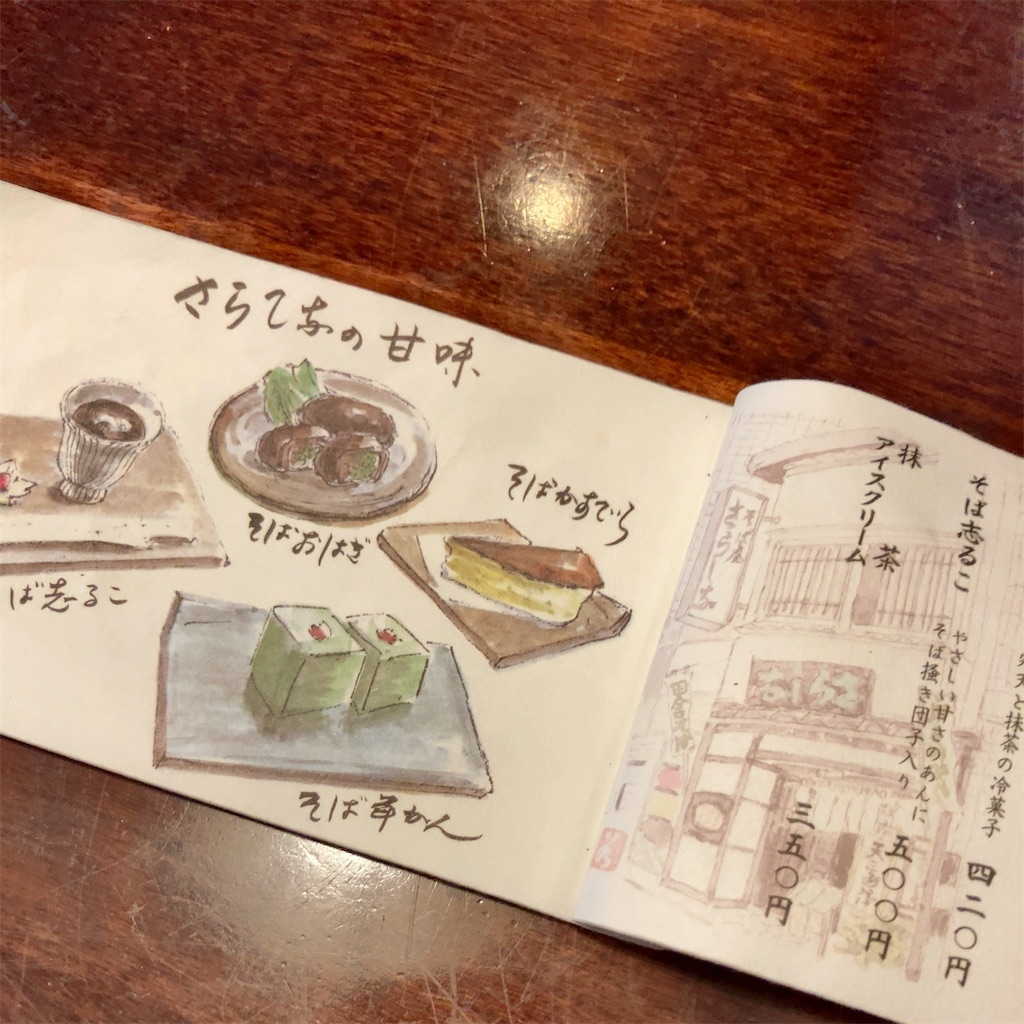 さらしなの甘味
そばおはぎ
そばかすてら
ば志るこ
そば羊かん
寒天と抹茶の冷菓子
四二〇円
そば志るこ
やさしい甘さのあんに
そば掻き団子入り
五〇〇円
抹茶
アイスクリーム
三五〇円
さらしな